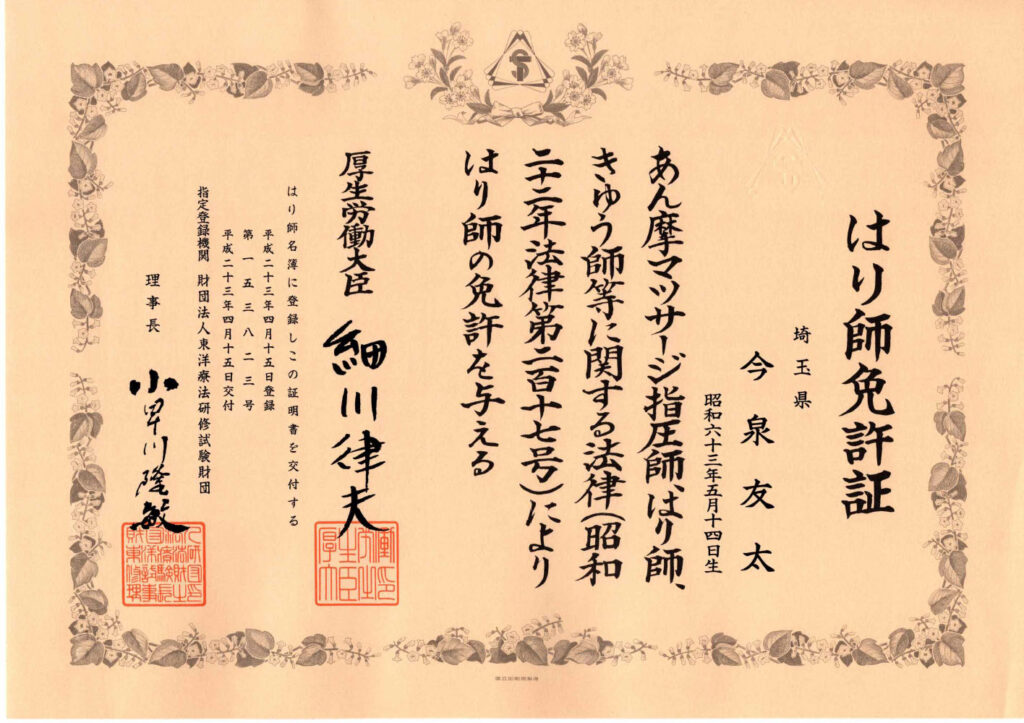 はり師免許証
埼玉県
今泉友太
昭和六十三年五月十四日生
あん摩マツサージ指圧師、はり師、
きゆう師等に関する法律(昭和
二十二年法律第二百十七号)により
はり師の免許を与える
厚生労働大臣 細川律夫
はり師名簿に登録しこの証明書を交付する
平成二十三年四月十五日登録
第一五三八二三号
平成二十三年四月十五日交付
指定登録機関 財団法人東洋療法研修試験財団
理事長 小早川隆敏